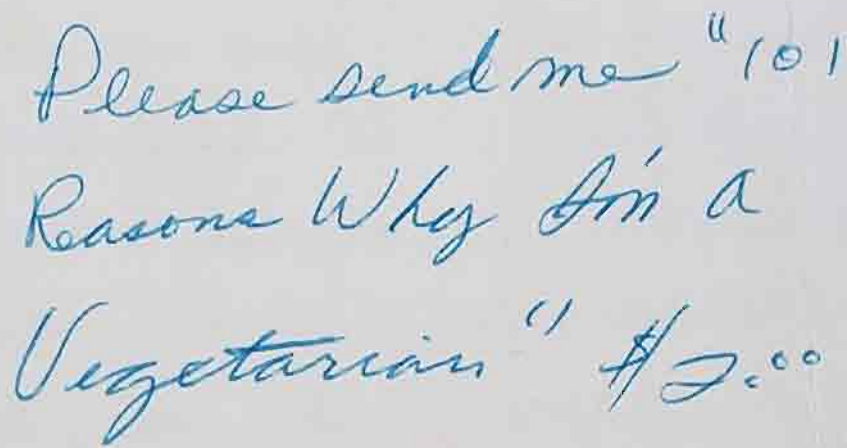 Please send me "101
Reasons Why I'm a
Vegetarian" $2.00